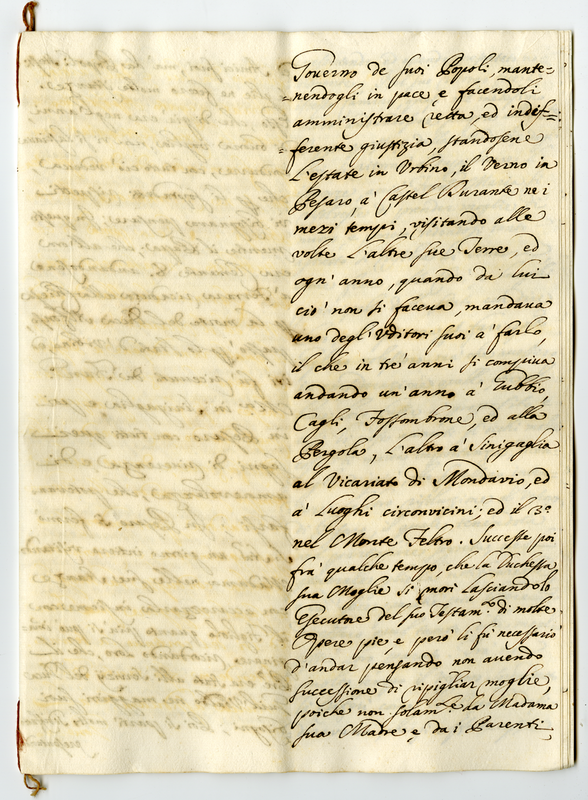 Governo de suoi Popoli, mante=
=nendogli in pace, e facendoli
amministrare retta, ed indif=
=ferente giustizia, standosene
L'estate in Urbino, il Verno in
Pesaro, à Castel Durante nei
mezi tempi, visitando alle
volte L'altre sue Terre, ed
ogn' anno, quando da lui
ciò non si faceva, mandava
uno degl' Uditori suoi à farlo,
il che in trè anni si compiva
andando un' anno à Gubbio,
Cagli, Fossombrone, ed alla
Pergola, L'altro à Sinigaglia
al Vicariato di Mondavio, ed
à Luoghi circonvicini; ed il 3.º
nel Monte Feltro. Successe poi
frà qualche tempo, che la Duchessa
sua Moglie si morì Lasciandolo
Esecutore del suo Testam.to di molte
Opere pie, e però li fù necessario
d'andar pensando non avendo
successione di ripigliar moglie,
poiche non solam.te da Madama
sua Madre e da i Parenti,